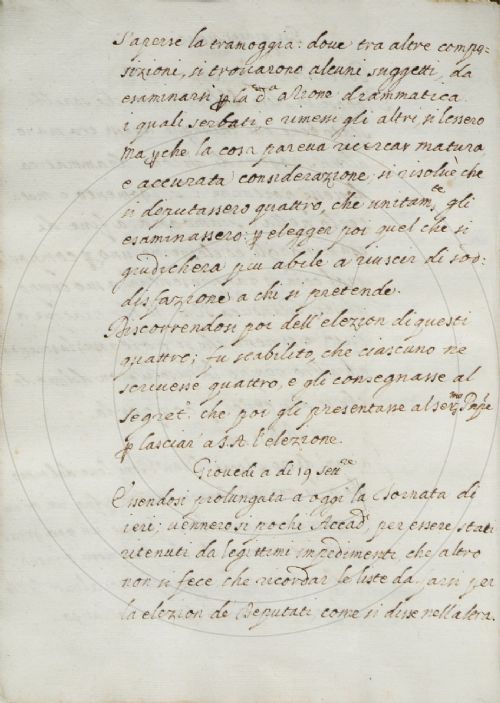 S'aperse la tramoggia: dove tra altre compo=
sizioni, si trovarono alcuni suggetti, da
esaminarsi p la d.a azione drammatica
i quali serbati, e rimessi gli altri si lessero
Ma pche la cosa pareva ricercar matura
e accurata considerazione, si risolvè che
si deputassero quattro, che unitam.te gli
esaminassero: p elegger poi quel che si
giudicherà più abile a riuscir di sod=
disfazione a chi si pretende.
Discorrendosi poi dell'elezion di questi
quattro; fu stabilito, che ciascuno ne
scrivesse quattro, e gli consegnasse al
Segret.o che poi gli presentasse al ser.mo Pnpe
p lasciar a S.A. l'elezione.
Giovedì a dì 19 Sett.re
Essendosi prolungata a oggi la Tornata di
ieri: vennero sì pochi Accad.i per essere stati
ritenuti da legittimi impedimenti, che altro
non si fece che ricordar le liste da farsi per
la elezion de Deputati, come si disse nell'altra.